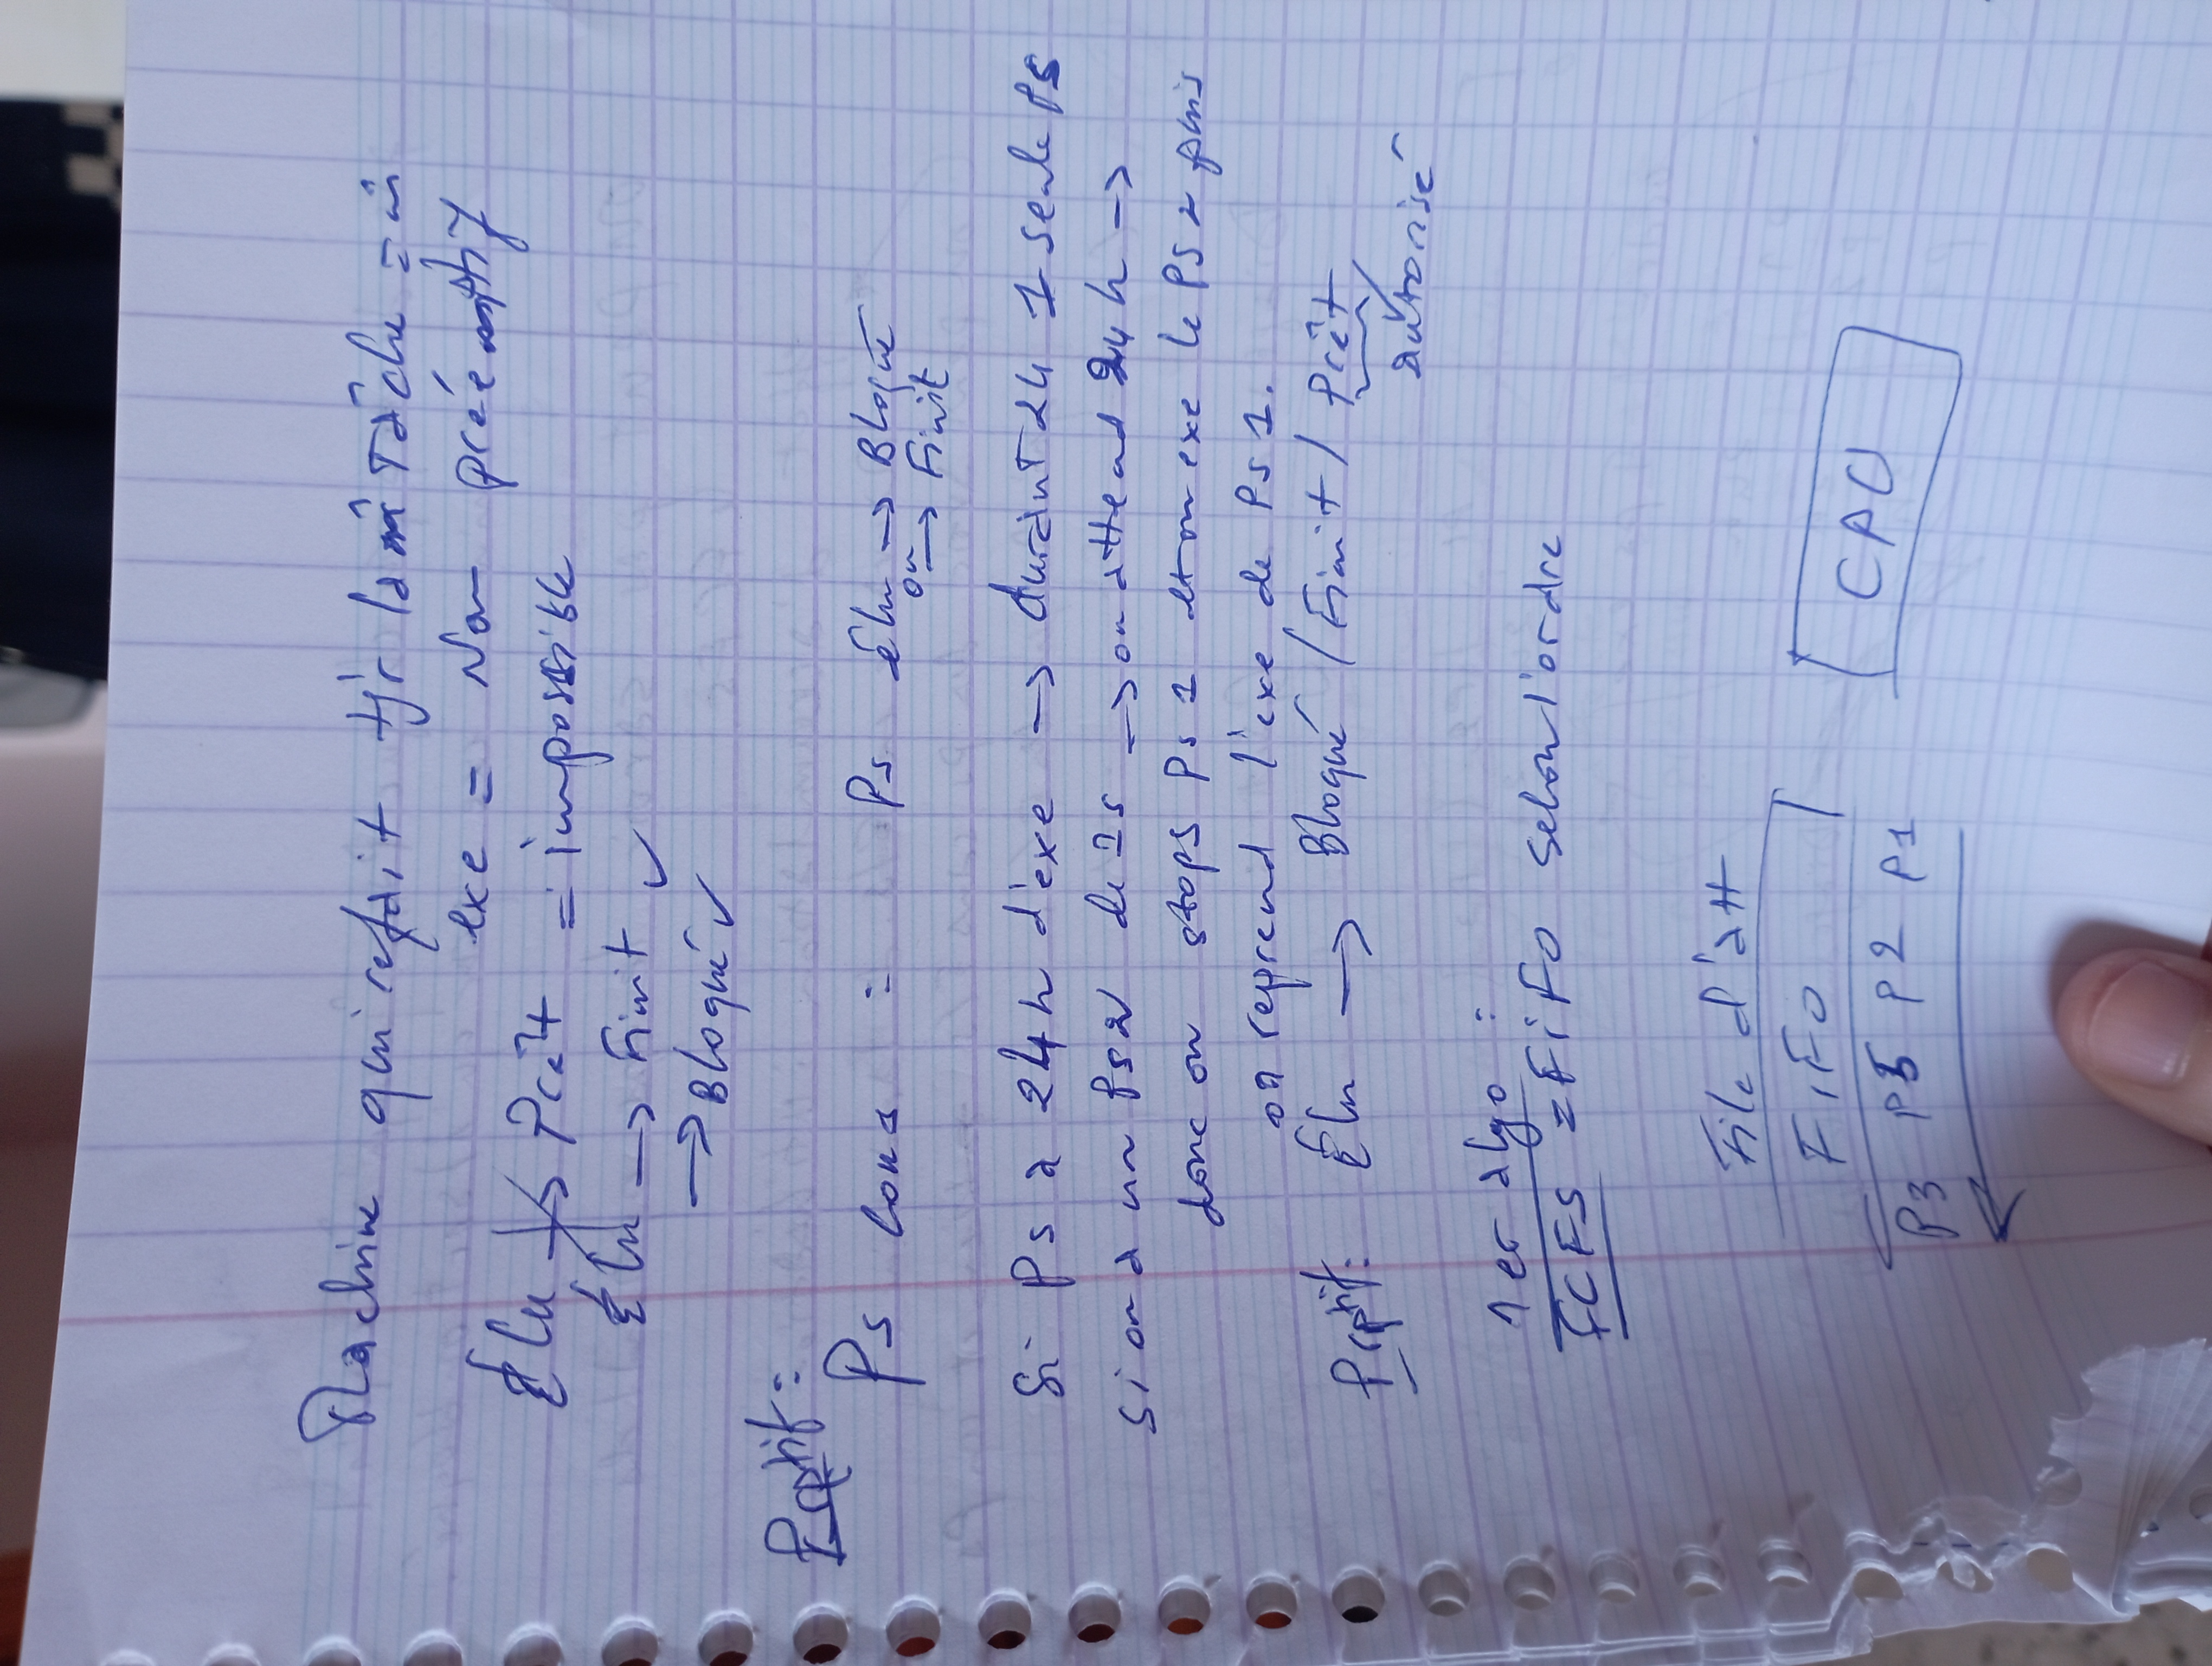 Machine qui refait tjr la m̂ Tâche = m̂
exe = Non préemptif
Élu → Prêt = impossible
Élu → Finit ✓
→ Bloqué ✓
Prptif :
Ps : Ps élu → Bloqué
ou → Finit
Si Ps a 24h d'exe → durant 24 1 seule Ps
Si on a un Ps2 de 1s → on attend 24h →
donc on stops Ps 1 et on exe le Ps 2 puis
on reprend l'exe de Ps 1.
Prptif : Élu → Bloqué / Finit / Prêt
autorisé
1er algo :
FCFS = FiFo selon l'ordre
File d'att
FiFo
CPU
P3 P5 P2 P1